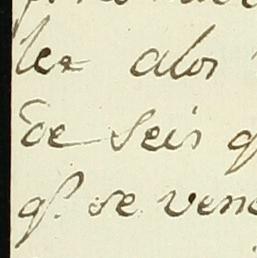 ler alos
de seis q
q.e se vene